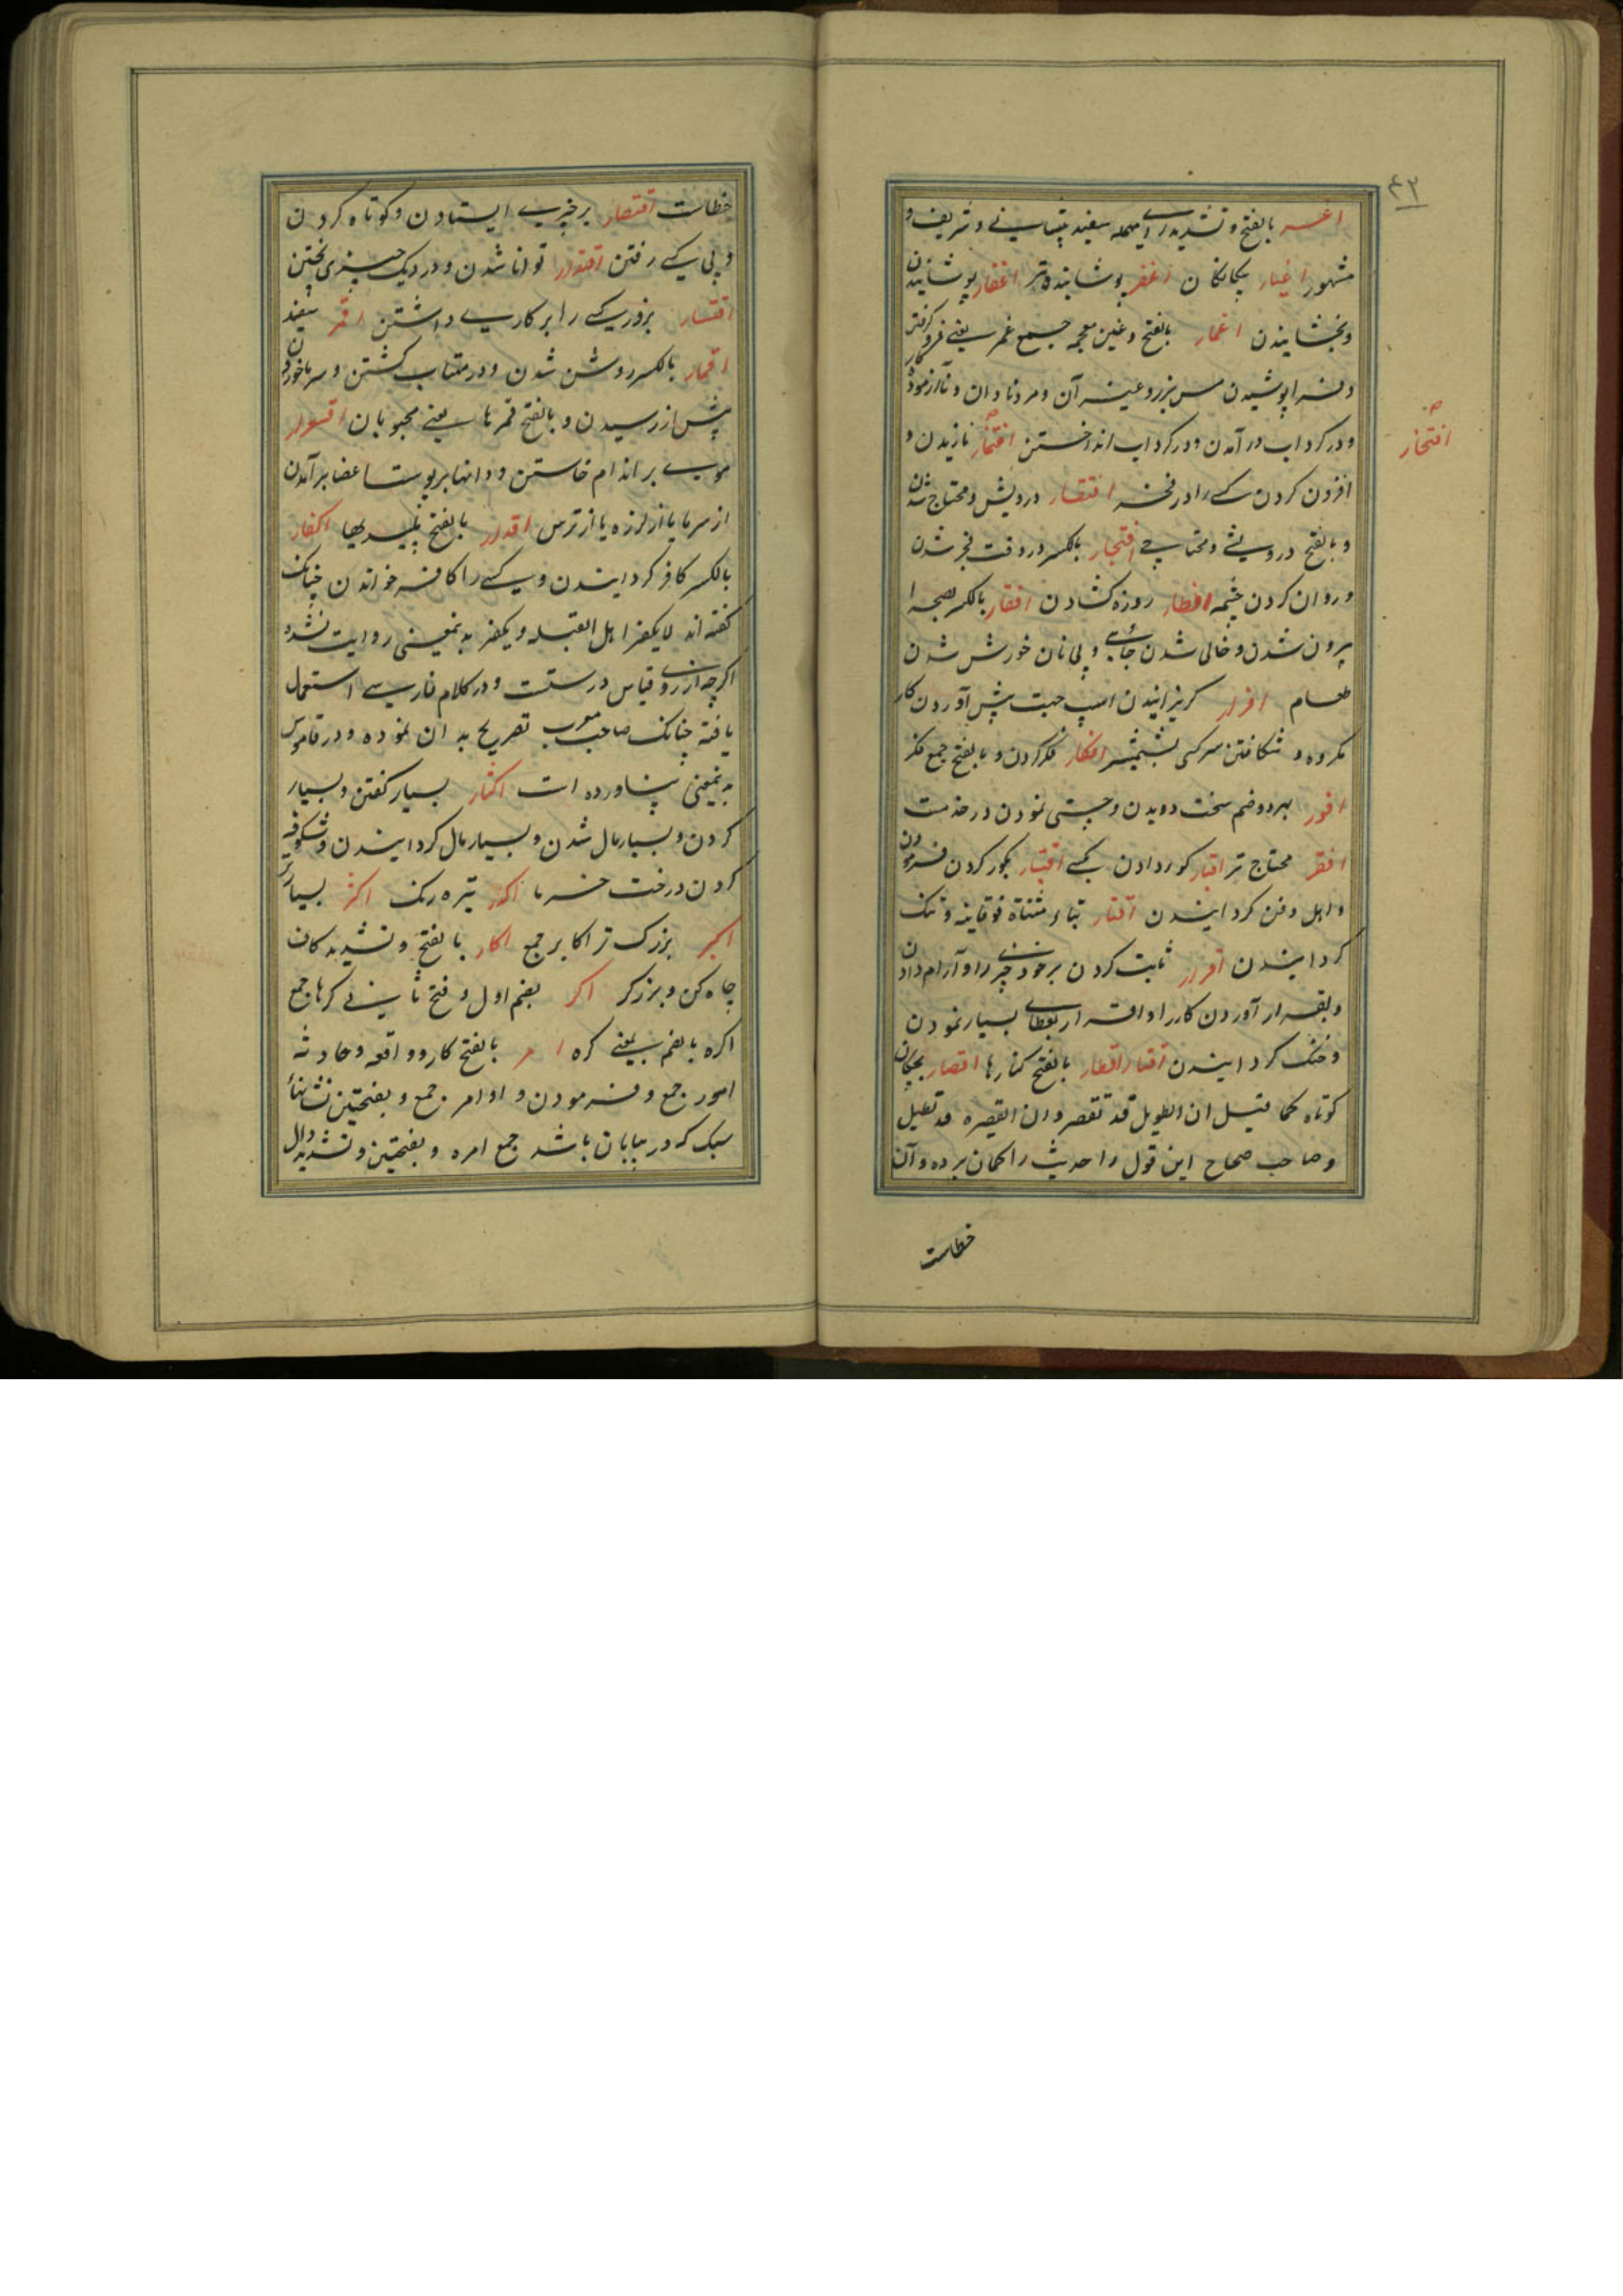 ۴۳
اغر بالفتح و تشدید رای مهمله سفید پیشانی و شریف و
مشهور اغیار بیگانگان اغفر پوشاننده تر اغفار پوشانیدن
و بخشانیدن اغمار بالفتح و غین معجمه جمع غمر یعنی فرو گرفتن
و فرا پوشیدن مس بزر و غیر آن و مرد نادان و ناآزموده کار
و در گرداب در آمدن و در گرداب انداختن افتخار نازیدن و
افتخار
افزون کردن کسی را در فخر افتقار درویش و محتاج شدن
و بالفتح درویشی و محتاجی افتجار بالکسر در وقت فجر شدن
و روان کردن چشمه افطار روزه گشادن افقار بالکسر بصحرا
بیرون شدن و خالی شدن جای و بی نان خورش شدن
طعام افرار گریزانیدن اسپ جهت پیش آوردن کار
مکروه و شکافتن سر کسی بشمشیر افکار فکر کردن و بالفتح جمع فکر
افور بهر دو ضم سخت دویدن و چستی نمودن در خدمت
افقر محتاج تر اقبار گور دادن کسی اقتبار بگور کردن فرمودن
و اهل دفن گردانیدن اقتار بتاء مثناة فوقانیه و تنک
گردانیدن اقرار ثابت کردن بر خود چیزی را و آرام دادن
و بقرار آوردن کار را و اقرار بعطای بسیار نمودن
و خنک گردانیدن اقتار اقطار بالفتح کنارها اقصار بچگان
کوتاه کما قیل ان الطویل قد تقصر و ان القصیره قد تطیل
و صاحب صحاح این قول را حدیث را گمان برده و آن
خطاست
خطاست اقتصار بر چیزی ایستادن و کوتاه کردن
و پی کسی رفتن اقتدار توانا شدن و در دیک چیزی پختن
اقتسار بزور کسی را بر کاری داشتن اقمر سفید
اقمار بالکسر روشن شدن و در مهتاب گشتن و سرما خوردن
پیش از رسیدن و بالفتح قمرها یعنی محبوبان اقشعرار
موی بر اندام خاستن و دانها بر پوست اعضا بر آمدن
از سرما یا از لرزه یا از ترس اقذار بالفتح پلیدیها اکفار
بالکسر کافر گردانیدن و کسی را کافر خواندن چنانک
گفته اند لایکفر اهل القبله و یکفر به بمعنی روایت نشده
اگرچه از روی قیاس درستست و در کلام فارسی استعمال
یافته چنانک صاحب معرب تصریح به ان نموده و در قاموس
به بمعنی نیاورده است اکثار بسیار گفتن و بسیار
کردن و بسیار مال شدن و بسیار مال گردانیدن و شکوفه
کردن درخت خرما اکدر تیره رنک اکثر بسیارتر
اکبر بزرگ تر اکابر جمع اکار بالفتح و تشدید کاف
چاه کن و برزگر اکر بضم اول و فتح ثانی کرها جمع
اکره بالضم یعنی کره امر بالفتح کار و واقعه و حادثه
امور جمع و فرمودن و اوامر جمع و بفتحتین نشانهاء
سبک که در بیابان باشد جمع امره و بفتحتین و تشدید دال